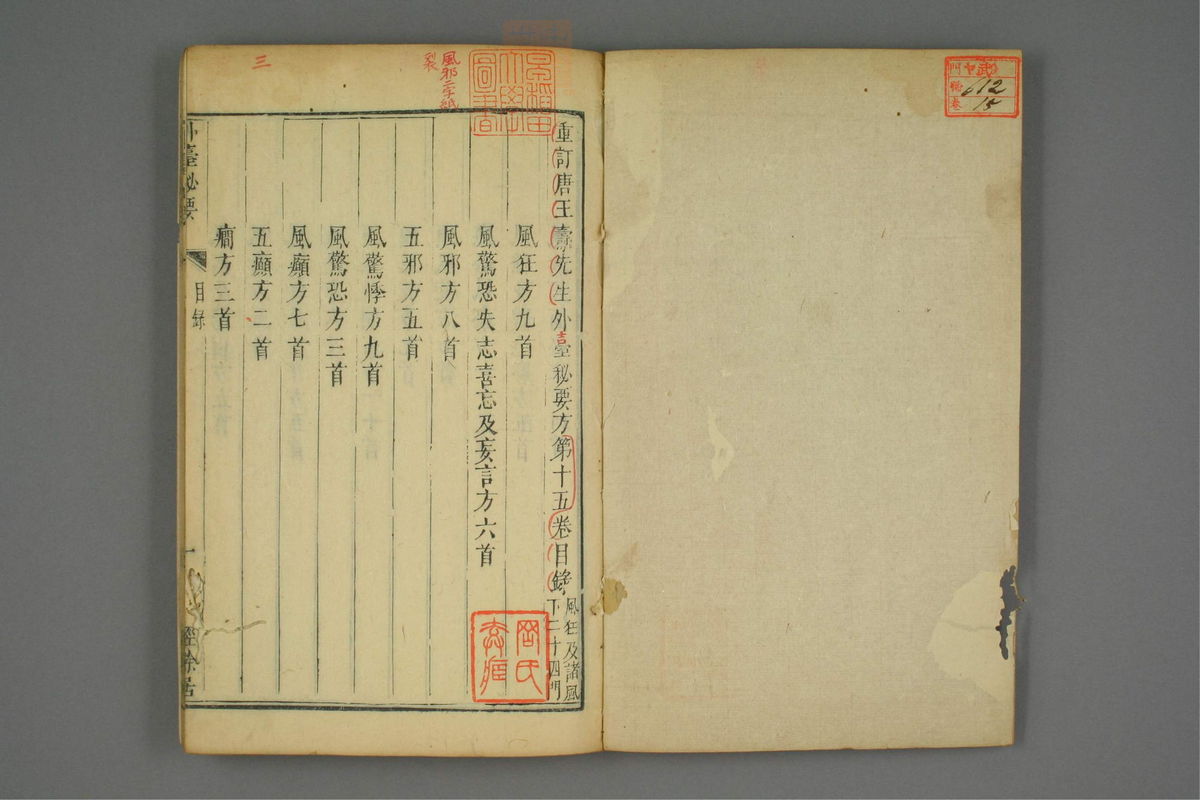 重訂唐王燾先生外臺秘要方第十五卷目錄
風狂及諸風
下二十四門
風狂方九首
風驚恐失志喜忘及妄言方六首
風邪方八首
五邪方五首
風驚悸方九首
風驚恐方三首
風癲方七首
五癲方二首
癇方三首
臺秘要
目錄
一
經餘居
三
風邪二字紙
裂
早稻田
大學
圖書
齊氏
612
15